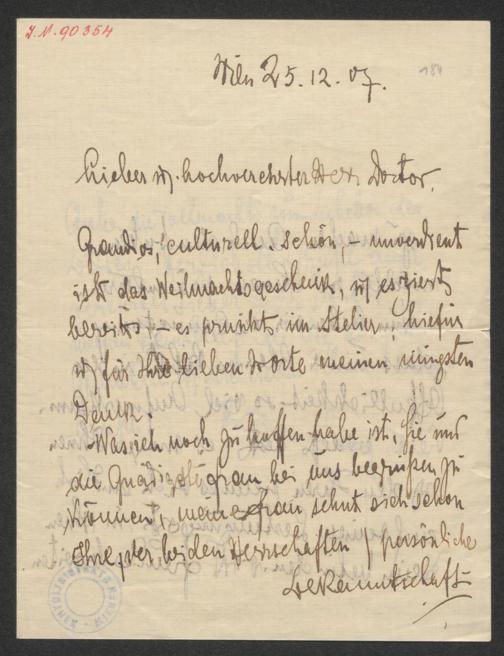 J.N. 90354
Wien 25.12.07.
184
Lieber u. hochverehrter Herr Doctor.
Grandios, culturell schön, – unverdient
ist das Weihnachtsgeschenk, u es ziert
bereits, – es prunkt im Atelier, hiefür
u für Ihre lieben Worte meinen innigsten
Dank.
Was ich noch zu hoffen habe ist, Sie und
die Gnädigste Frau bei uns begrüßen zu
können, meine Frau sehnt sich schon
Ihre, der beiden Herrschaften, persönliche
Bekanntschaft